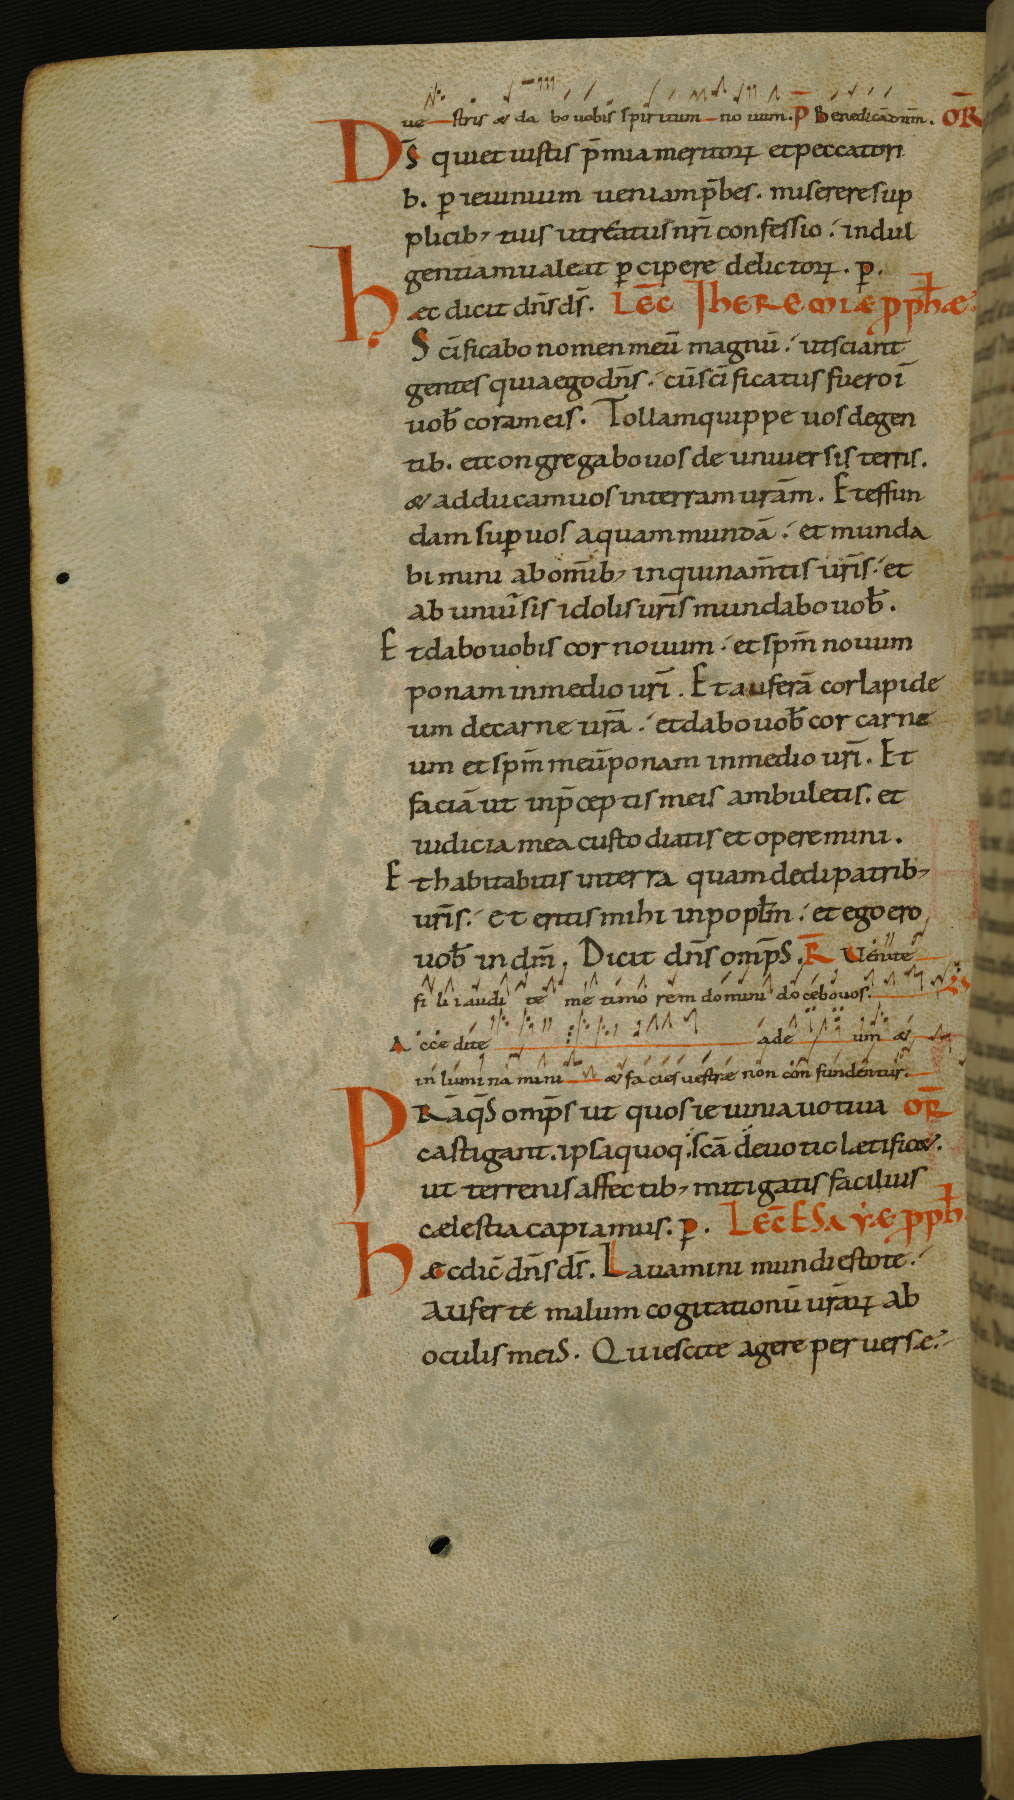 ue stris & da bo uobis spiritum no uum. P Benedicā dnm̄. OR̄
DS̄ qui et iustis p̄mia meritorꝝ et peccatori
b. ꝑ ieiunium ueniam p̄bes. miserere sup
plicib; tuis ut reatus nr̄i confessio. indul
gentiam ualeat ꝑcipere delictorꝝ. ꝑ.
haec dicit dn̄s ds̄. LEC̄ IhEREmiæ pphæ.
Scīficabo nomen meū magnū. ut sciant
gentes quia ego dn̄s. cū scīficatus fuero ī
uob̄ coram eis. Tollam quippe uos de gen
tib. et congregabo uos de uniuersis terris.
& adducam uos in terram urām. Et effun
dam suꝑ uos aquam mundā. et munda
bimini ab om̄ib; inquinam̄tis ur̄is. et
ab uniūsis idolis ur̄is mundabo uob̄.
Et dabo uobis cor nouum. et spm̄ nouum
ponam in medio ur̄i. Et auferā cor lapide
um de carne ur̄a. et dabo uob̄ cor carne
um et spm̄ meū ponam in medio ur̄i. Et
faciā ut in p̄ceptis meis ambuletis. et
iudicia mea custodiatis et operemini.
Et habitabitis in terra quam dedi patrib;
ur̄is. et eritis mihi in poplm̄. et ego ero
uob̄ in dm̄. Dicit dn̄s omp̄S. R̄ Uenite
fi li i audi te me timo rem domini docebo uos.
Acce dite ade um &
inlumi na mini & facies uestræ non con fundentur.
PRā q̄S omp̄s ut quos ieiunia uotiua OR̄
castigant. ipsa quoq. scā deuotio lætific&.
ut terrenis affectib; mitigatis facilius
cælestia capiamus. ꝑ. LEC̄ ESayæ pph.
hæc dic̄ dn̄s ds̄. Lauamini mundi estote.
Auferte malum cogitationū urārꝝ ab
oculis meiS. Quiescite agere peruerse.